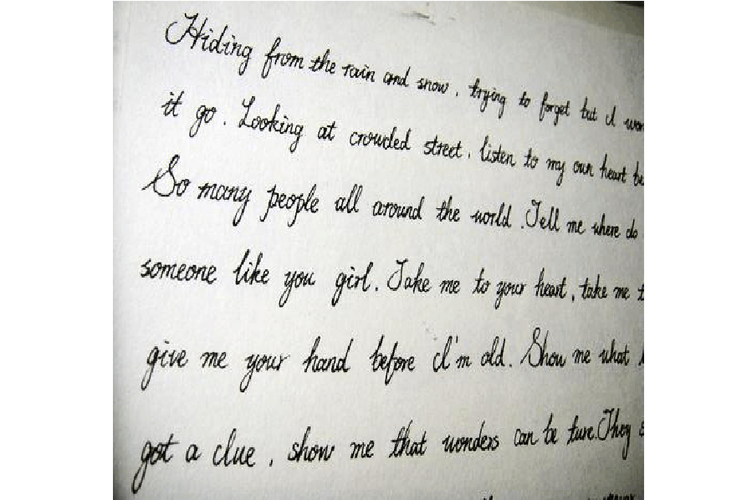 Hiding from the rain and snow, trying to forget but I won
it go. Looking at crowded street, listen to my own heart be
So many people all around the world. Tell me where do
someone like you girl. Take me to your heart, take me t
give me your hand before I'm old. Show me what
got a clue, show me that wonders can be ture. They